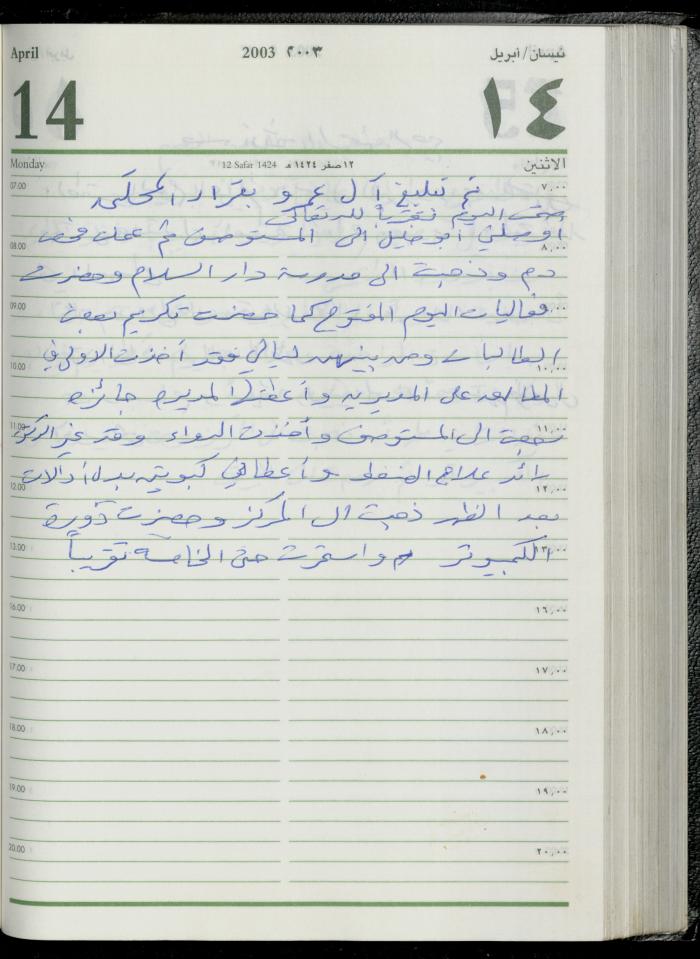 April 2003 ٢٠٠٣ نيسان/أبريل
14 ١٤
Monday 12 Safar 1424 ١٢ صفر ١٤٢٤ هـ الاثنين
07.00 تم تبليغ آل عمرو بقرار المحكمة ٧,٠٠
صمت اليوم تقرباً لله تعالى
أوصلني أبو خليل الى المستوصف ثم عملت فحص
08.00 ٨,٠٠
دم وذهبت الى مدرسة دار السلام وحضرت
09.00 فعاليات اليوم المفتوح كما حضرت تكريم بعض
الطالبات ومن بينهن ليالي فقد أخذت الاولى في
10.00 ١٠,٠٠
المطالعة على المديرية وأعطتها المديرة جائزة
11.00 ١١,٠٠
رجعت الى المستوصف وأخذت الدواء وقد غير الدكتور
رائد علاج الضغط وأعطاني كبوتين بدل أدالات
12.00 ١٢,٠٠
بعد الظهر ذهبت الى المركز وحضرت دورة
13.00 الكمبيوتر واستمرت حتى الخامسة تقريباً ١٣,٠٠
16.00 ١٦,٠٠
17.00 ١٧,٠٠
18.00 ١٨,٠٠
19.00 ١٩,٠٠
20.00 ٢٠,٠٠